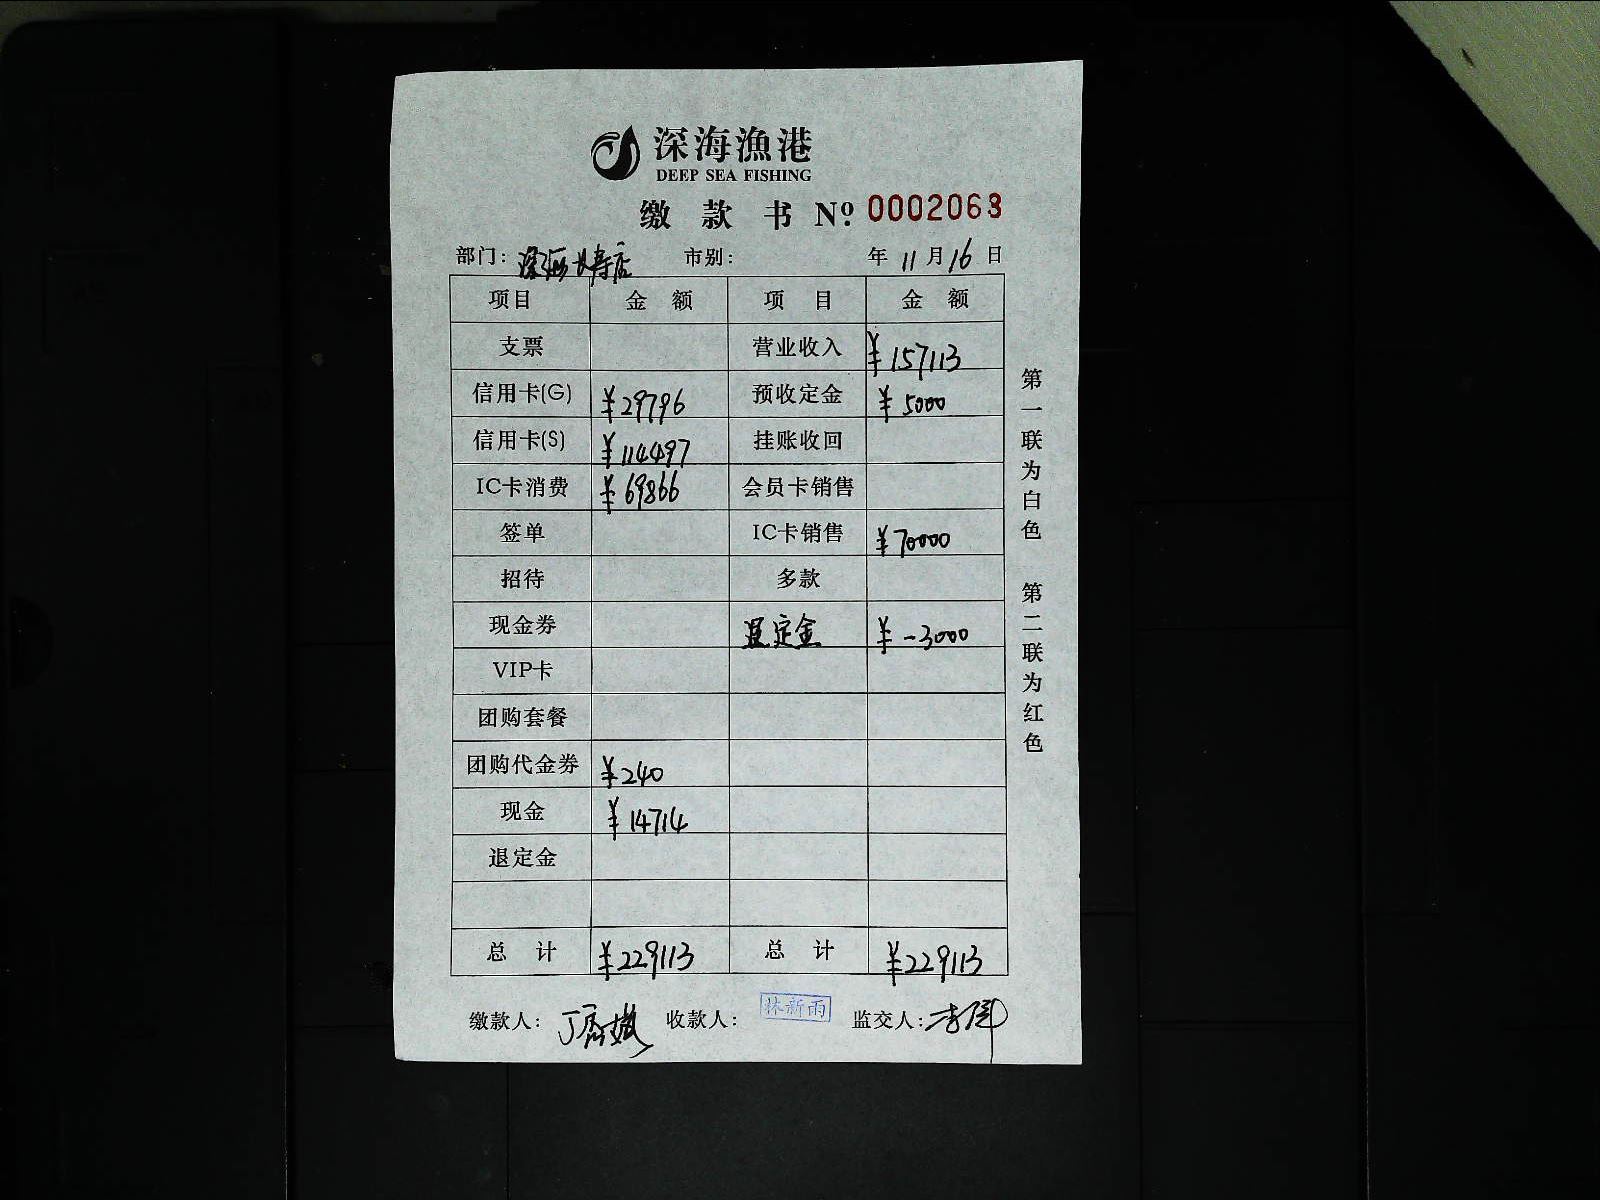 深海漁港
DEEP SEA FISHING
缴款书 Nº 0002063
部门：深海长寿店 市别： 年 11 月 16 日
项目 金额 项目 金额
支票 营业收入 ¥157113
信用卡(G) ¥29796 预收定金 ¥5000
信用卡(S) ¥114497 挂账收回
IC卡消费 ¥69866 会员卡销售
签单 IC卡销售 ¥70000
招待 多款
现金券 退定金 ¥-3000
VIP卡
团购套餐
团购代金券 ¥240
现金 ¥14714
退定金
总计 ¥229113 总计 ¥229113
缴款人： 收款人：林新雨 监交人：
第一联为白色 第二联为红色